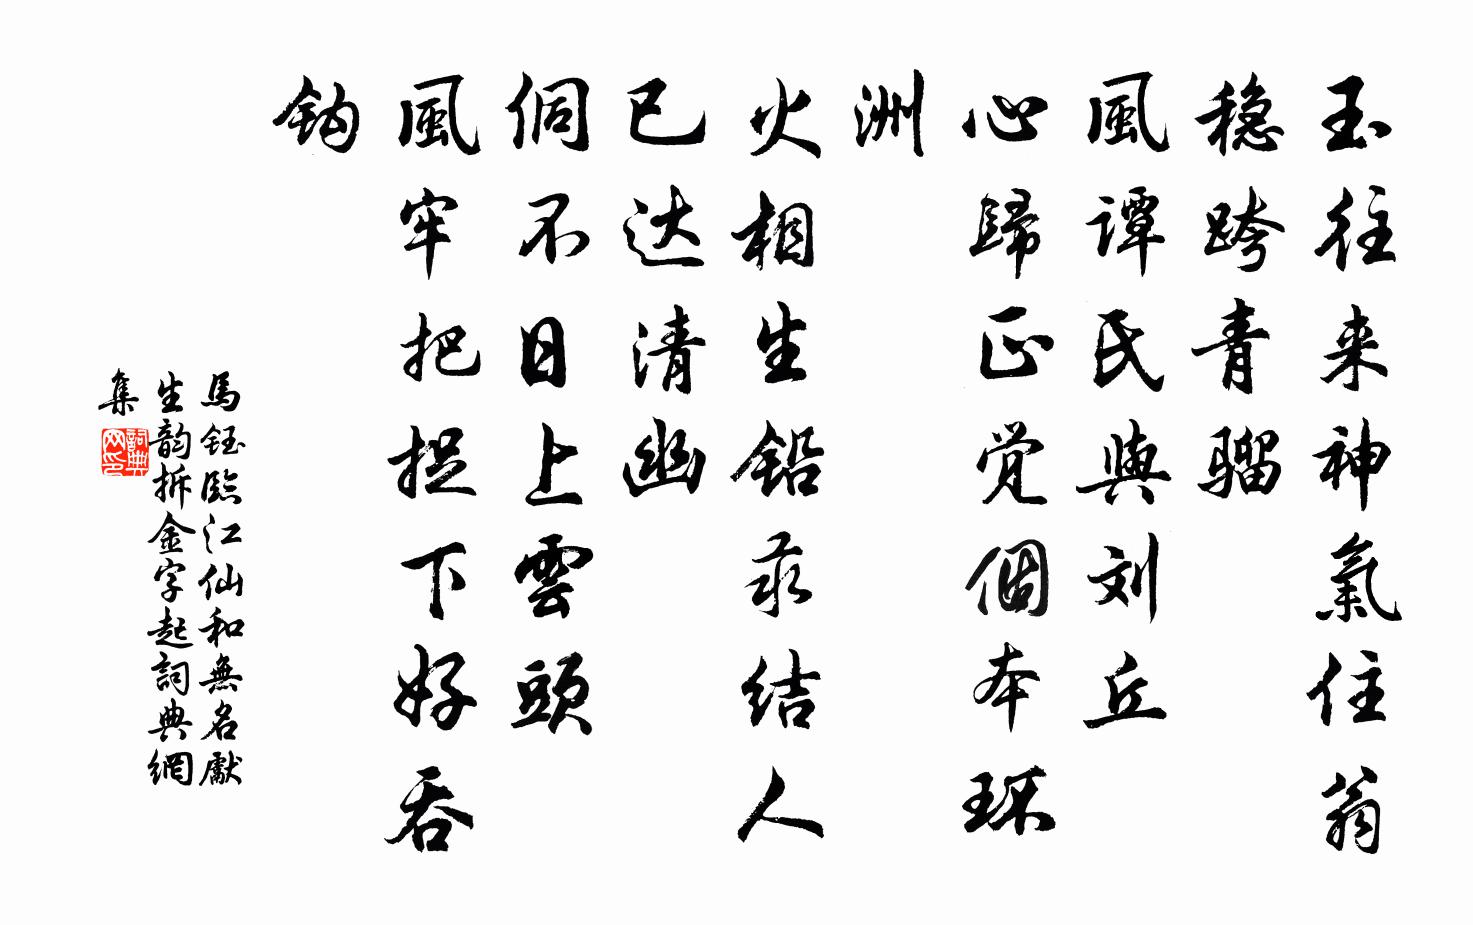 玉往来神氣住翁
稳跨青骝
風谭氏與刘丘
心歸正觉個本环
洲
火相生铅汞结人
已达清幽
侗不日上雲頭
風牢把捉下好吞
钩
馬鈺臨江仙和無名獻
生韵拆金字起詞典網
集
詞典网印